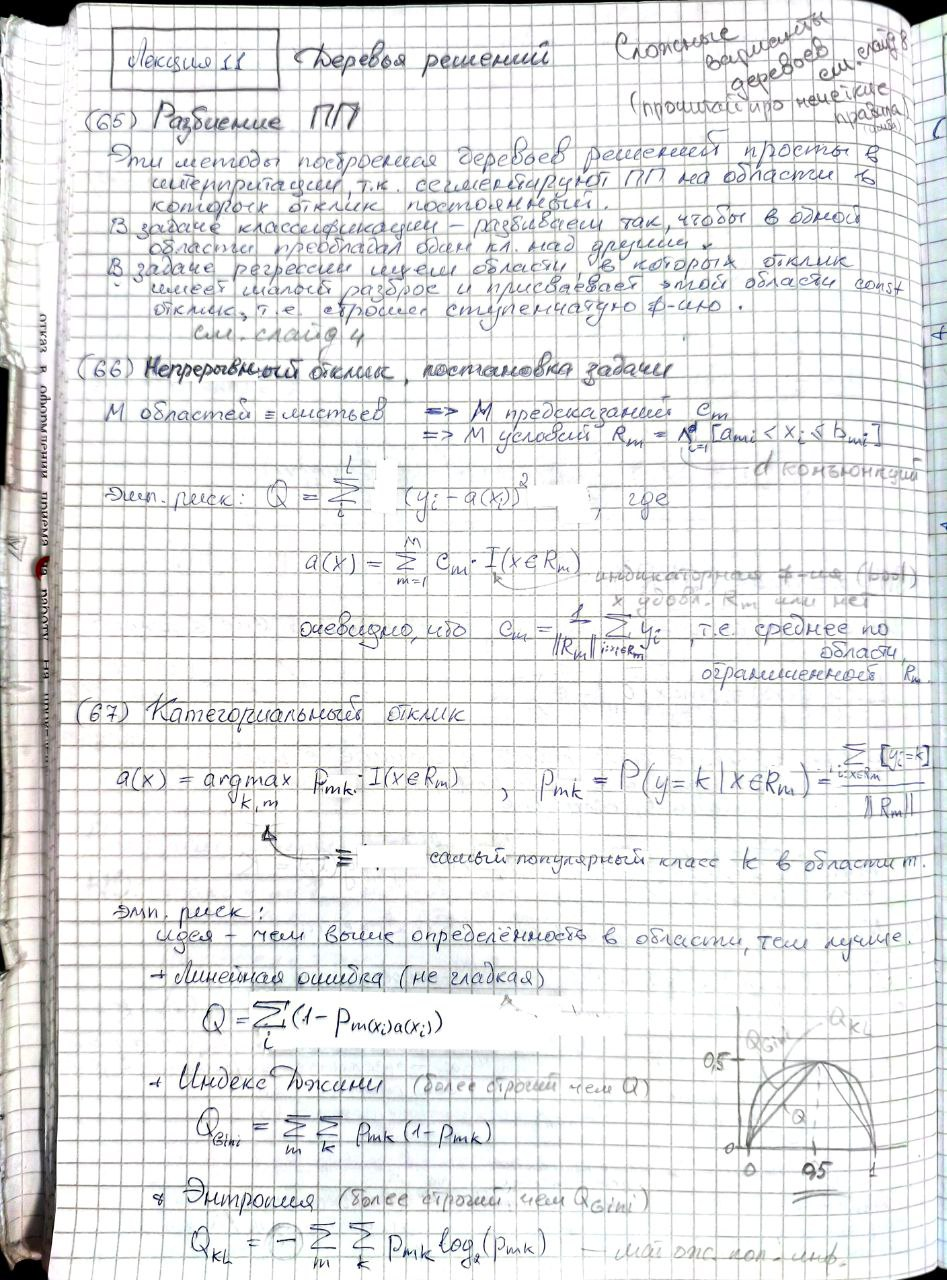 Лекция 11
Деревья решений
Сложные
варианты
деревьев
см. слайд 8
(прочитай про нечёткие
правила
(65) Разбиение ПП
Эти методы построения деревьев решений просты в
интерпритации, т.к. сегментируют ПП на области в
которых отклик постоянный.
В задаче классификации – разбиваем так, чтобы в одной
области преобладал один кл. над другими.
В задаче регрессии ищем области, в которых отклик
имеет малый разброс и присваевает этой области const
отклик, т.е. строим ступенчатую ф-ию.
см. слайд 4
(66) Непрерывный отклик, постановка задачи
M областей ≡ листьев => M предсказаний Cm
=> M условий Rm = ⋀ i=1 d [ami < xi ≤ bmi]
d конъюнкций
Эмп. риск: Q = Σ i l (yi – a(xi))², где
a(x) = Σ m=1 M Cm · I(x∈Rm)
индикаторная ф-ия (bool)
x удовл. Rm или нет
очевидно, что Cm = 1/||Rm|| Σ i:xi∈Rm yi, т.е. среднее по
области,
ограниченной Rm.
(67) Категориальный отклик
a(x) = argmax k,m Pmk · I(x∈Rm), Pmk = P(y=k | x∈Rm) = Σ i:xi∈Rm [yi=k] / ||Rm||
≡ самый популярный класс k в области m.
Эмп. риск:
идея – чем выше определённость в области, тем лучше.
+ Линейная ошибка (не гладкая)
Q = Σ i (1 – Pm(xi)a(xi))
QGini
QKL
0,5
Q
0
0
0,5
1
+ Индекс Джини (более строгий чем Q)
QGini = Σ m Σ k Pmk (1 – Pmk)
* Энтропия (более строгий чем QGini)
QKL = – Σ m Σ k Pmk log2(Pmk) – мат. ож. кол. инф.
отказ в оформлении приема на работу